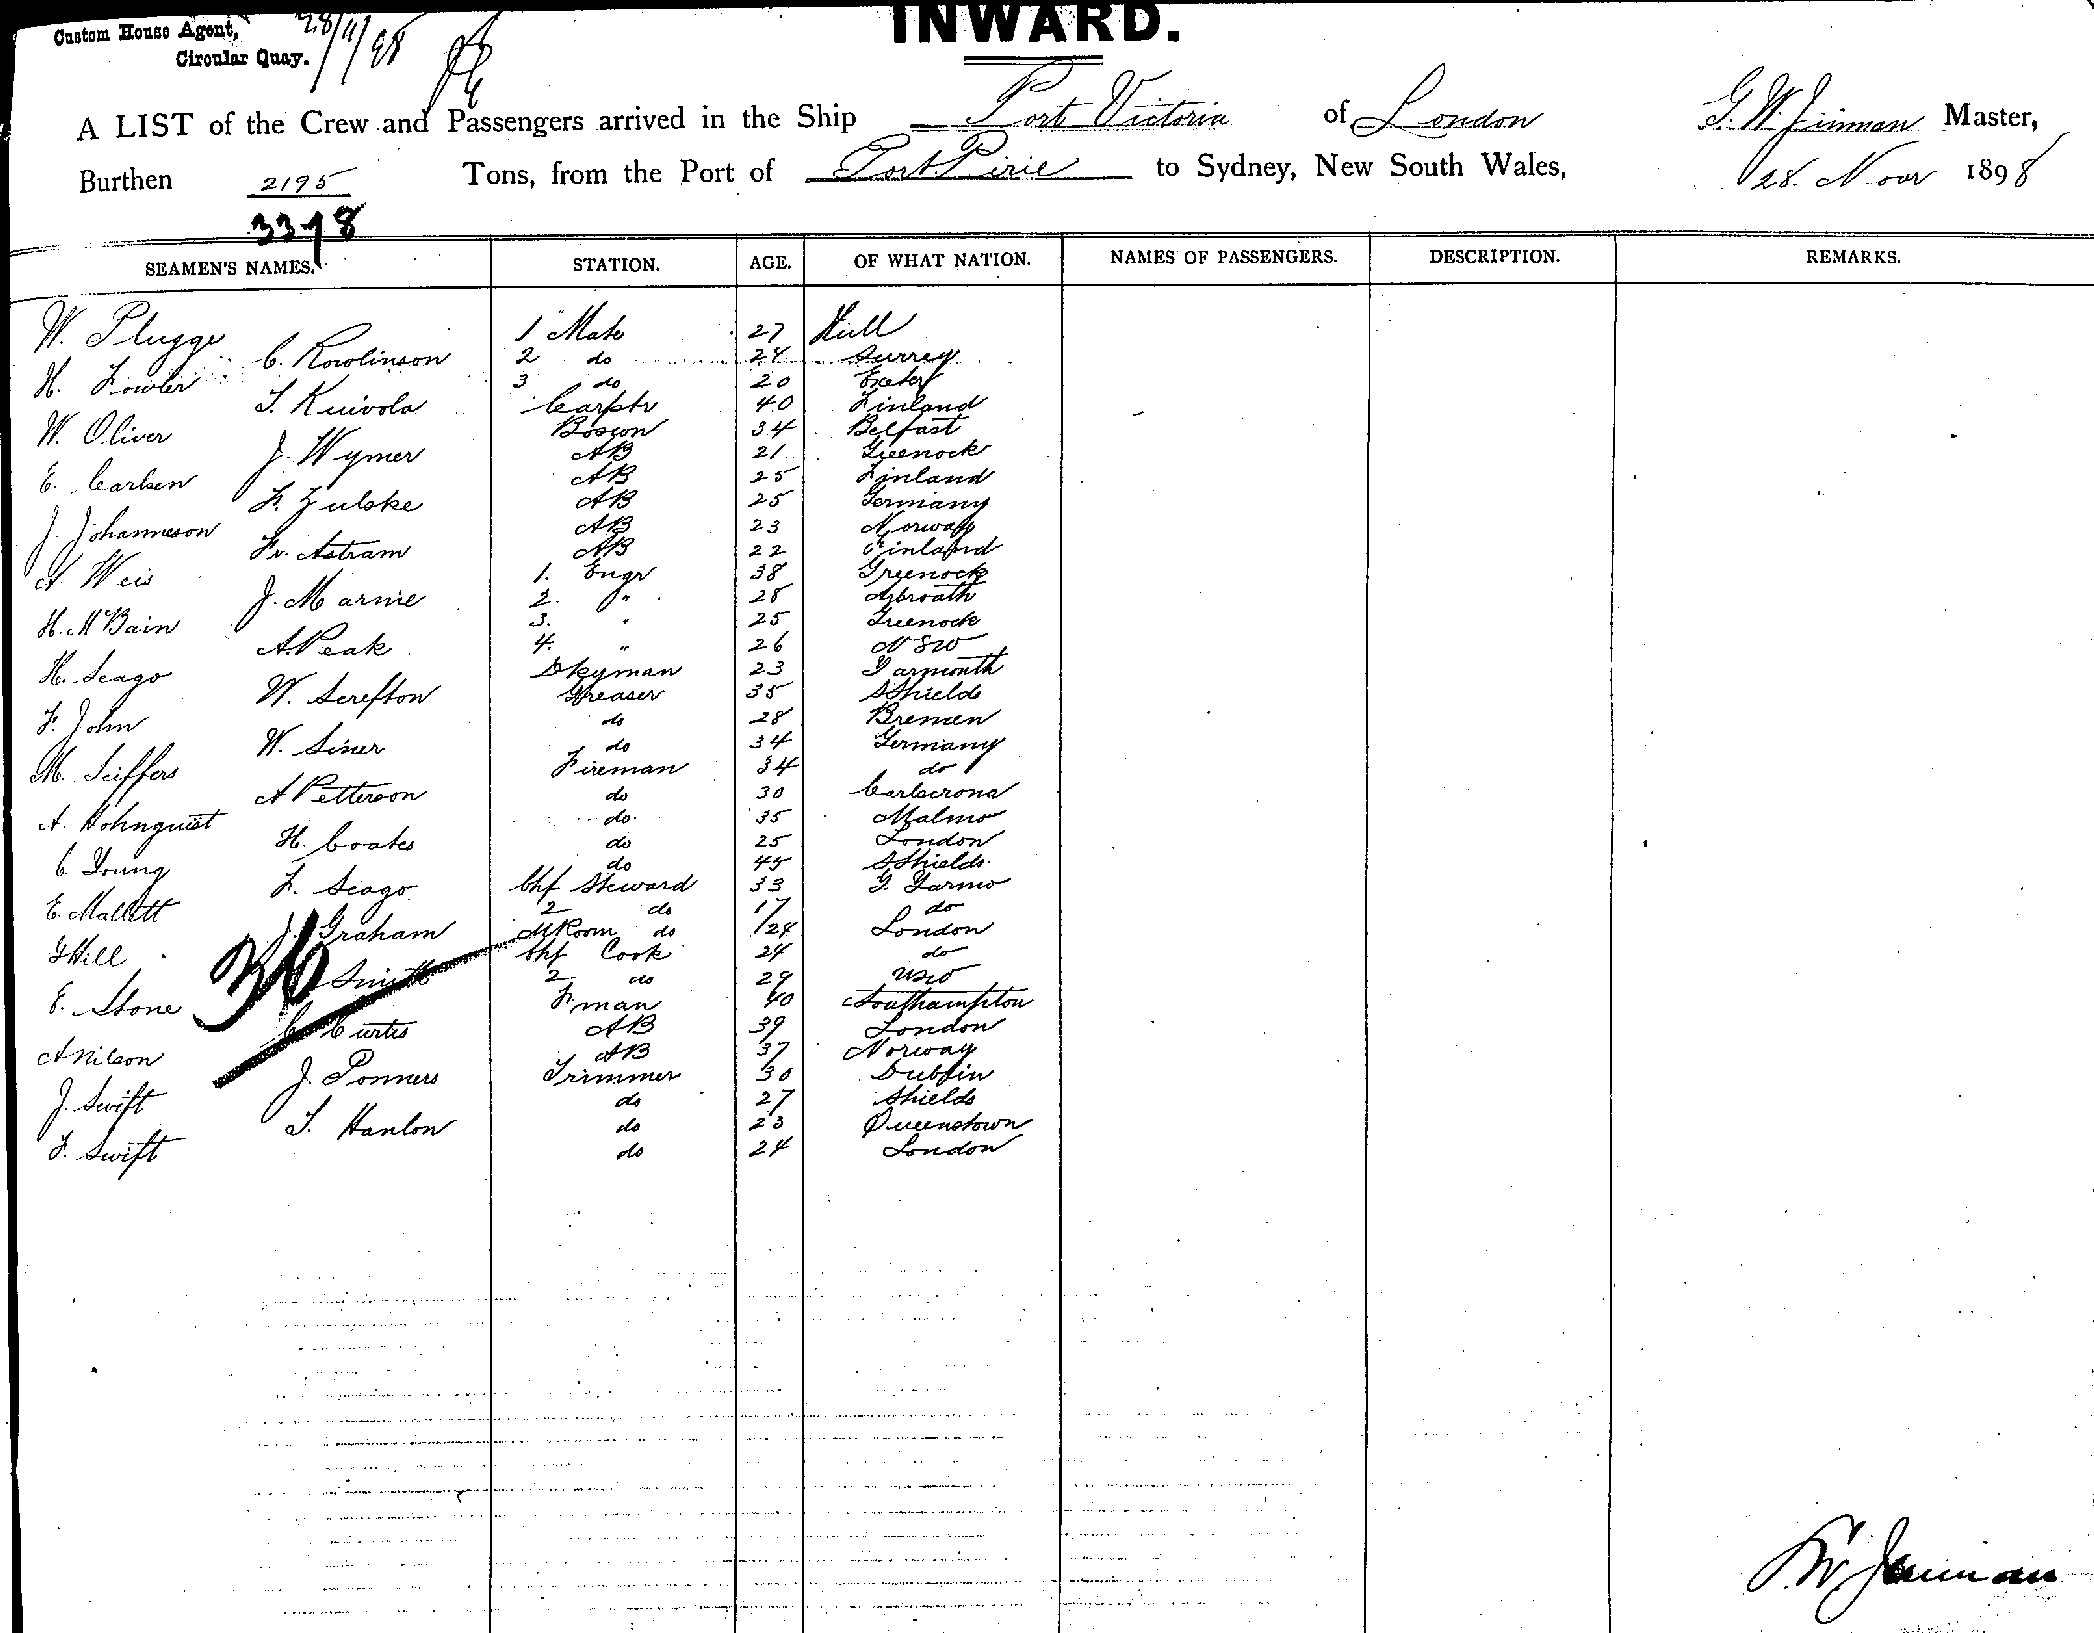 INWARD.
Custom House Agent,
Circular Quay.
28/11/98
A LIST of the Crew and Passengers arrived in the Ship Port Victoria of London G. W. Jinman Master,
Burthen 2195 Tons, from the Port of Port Pirie to Sydney, New South Wales, 28 Novr 1898
3378
SEAMEN'S NAMES. STATION. AGE. OF WHAT NATION. NAMES OF PASSENGERS. DESCRIPTION. REMARKS.
W. Plugge 1 Mate 27 Hull
C. Rowlinson 2 do 24 Surrey
H. Fowler 3 do 20 Exeter
T. Kuivola Carptr 40 Finland
W. Oliver Boson 34 Belfast
J. Wymer AB 21 Greenock
E. Carlsen AB 25 Finland
F. Zulske AB 25 Germany
J. Johanneson AB 23 Norway
Fr. Astram AB 22 Finland
A Weis 1. Engr 38 Greenock
J. Marnie 2. " 28 Arbroath
H. McBain 3. " 25 Greenock
A. Peak 4. " 26 NSW
H. Seago Dkyman 23 Yarmouth
W. Screfton Greaser 35 SShields
F. John do 28 Bremen
W. Siner do 34 Germany
M. Seiffers Fireman 34 do
A Petterson do 30 Carlscrona
A. Hohnquist do 35 Malmo
H. Coates do 25 London
C. Young do 45 SShields
F. Seago Chf Steward 33 G. Yarmo
E. Mallett 2 do 17 do
J. Graham MRoom do 24 London
G Hill Chf Cook 24 do
Smith 2 do 29 NSW
E. Stone Fman 40 Southampton
C Curtis AB 39 London
A Nilson AB 37 Norway
J. Ponners Trimmer 30 Dublin
J. Swift do 27 Shields
T. Hanlon do 23 Queenstown
F. Swift do 24 London
36
G W Jinman